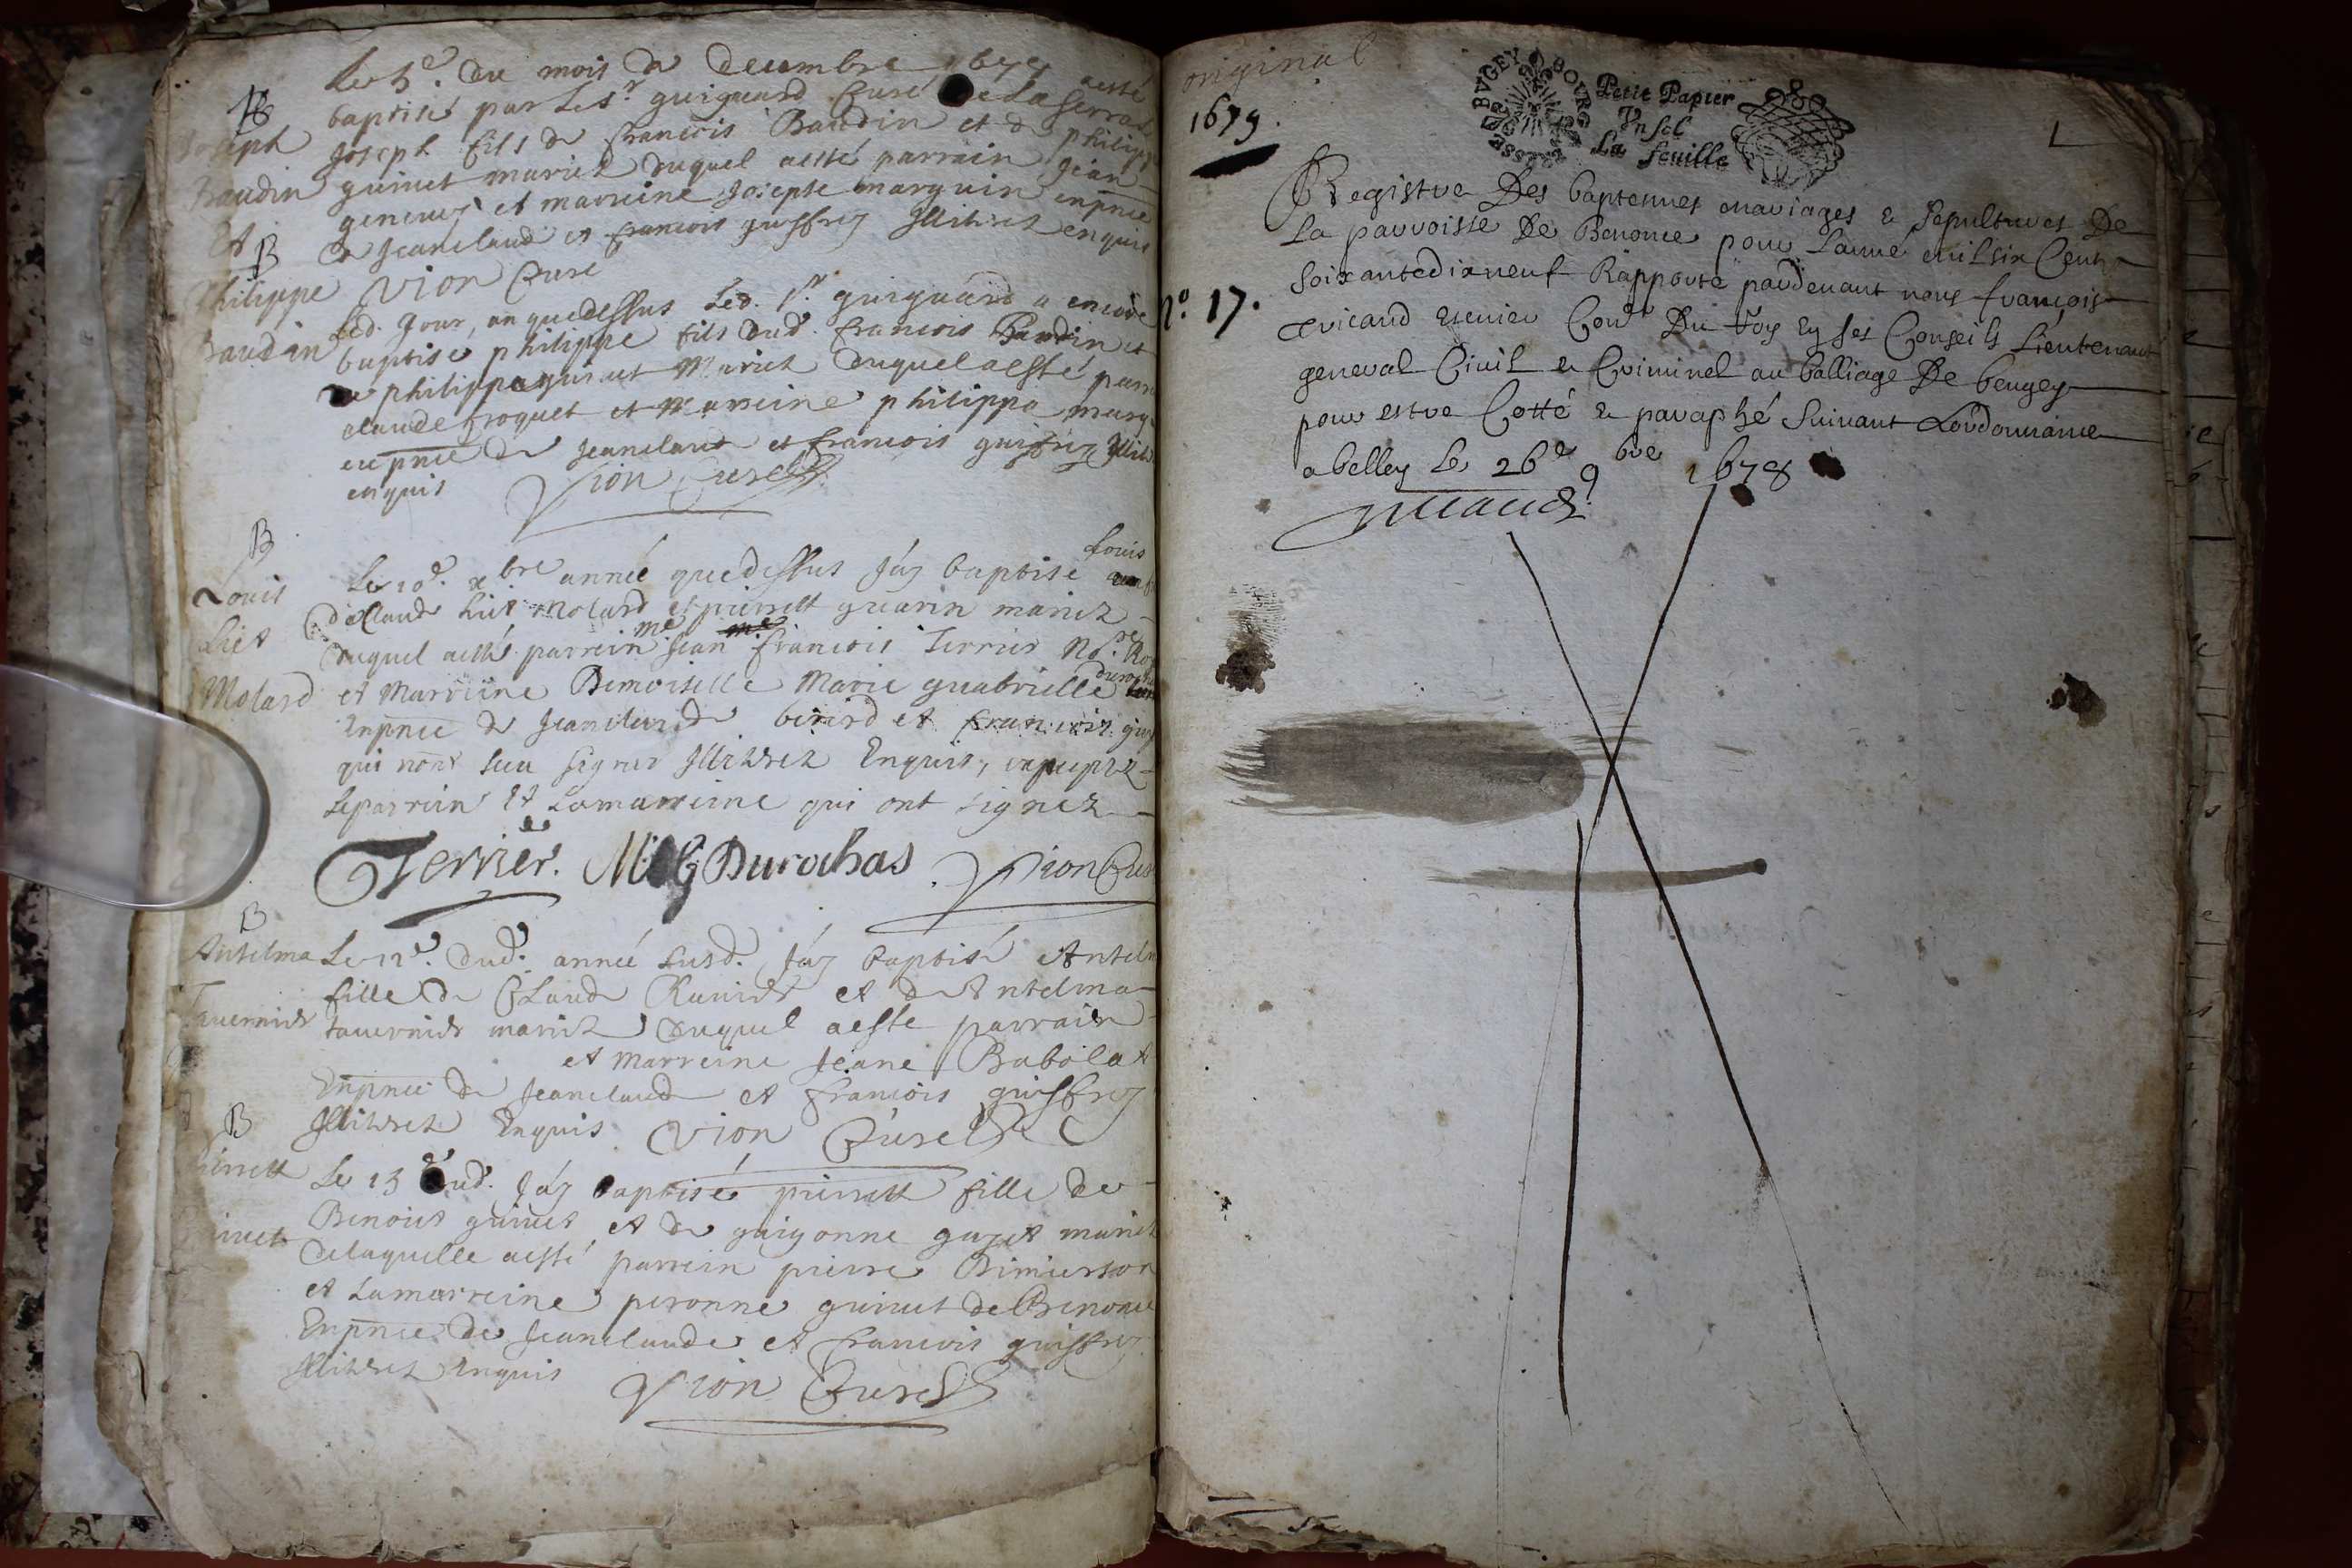 Le 5e. du mois de decembre 167 aesté
baptisé par Le Sr guiguard Curé de La Serra
Joseph fils de francois Baudin et de philippe
guinet mariez duquel aesté parrain Jean
et marreine Josepte marguin enpnce
de Jeanclaude et francois guiffrey Illitrez enquis
Vion Curé
B
Joseph
Baudin
Et
B
Philippe
Baudin
Led. Jour, an quedessus Led. Sr. guiguard a encore
baptisé philippe fils dud. francois Baudin et
de philippe guinet Mariez duquel aesté parr
claude et Marreine philippa marg
enpnce de Jeanclaude et francois guiffrey Illit
enquis Vion Curé
B
Louis
Liet
Molard
Louis
Le 10e. xbre année quedessus Jáy baptisé
de Claude Liet Molard et pierrett guarin mariez
duquel aesté parrein me Jean francois Terrier No.re Ro
et Marreine Demoiselle Marie guabrielle duro
Enpnce de Jeanclaude berard et francois gui
qui nont sceu signer Illitrez Enquis, excepté
Leparrein Et Lamarreine qui ont signez
Terrier. M G Durochas Vion Cur
B
Antelma
Tavernier
Le 12e. dud. année susd. Jáy baptisé Antelm
fille de Claude Runier et de Antelma
tavernier mariez duquel aesté parrain
et marreine Jeane Babolat
Enpnce de Jeanclaude et francois guiffrey
Illitrez Enquis Vion Curé
B
Pierrett
guinet
Le 13e dud. Jáy baptisé pierrett fille de
Benoict guinet et de guigonne guyet mariez
delaquelle aesté parrein pierre
et Lamarreine peronne guinet de Benonce
Enpnce de Jeanclaude et francois guiffrey
Illitrez Enquis Vion Curé
original
1679.
BRESSE BVGEY BOURG
Petit Papier
Vn sol
La feuille
1
No. 17.
Registre Des baptesmes mariages & sepultures De
La parroisse De Benonce pour Lanné mil six Cent
soixantedixneuf Rapporté pardevant nous françois
tricaud escuier Coner Du Roy en ses Conseils Lieutenant
general Civil & Criminel au balliage De beugey
pour estre Cotté & paraphé suivant Lordonnance
a belley Le 26e 9bre 1678
tricaud